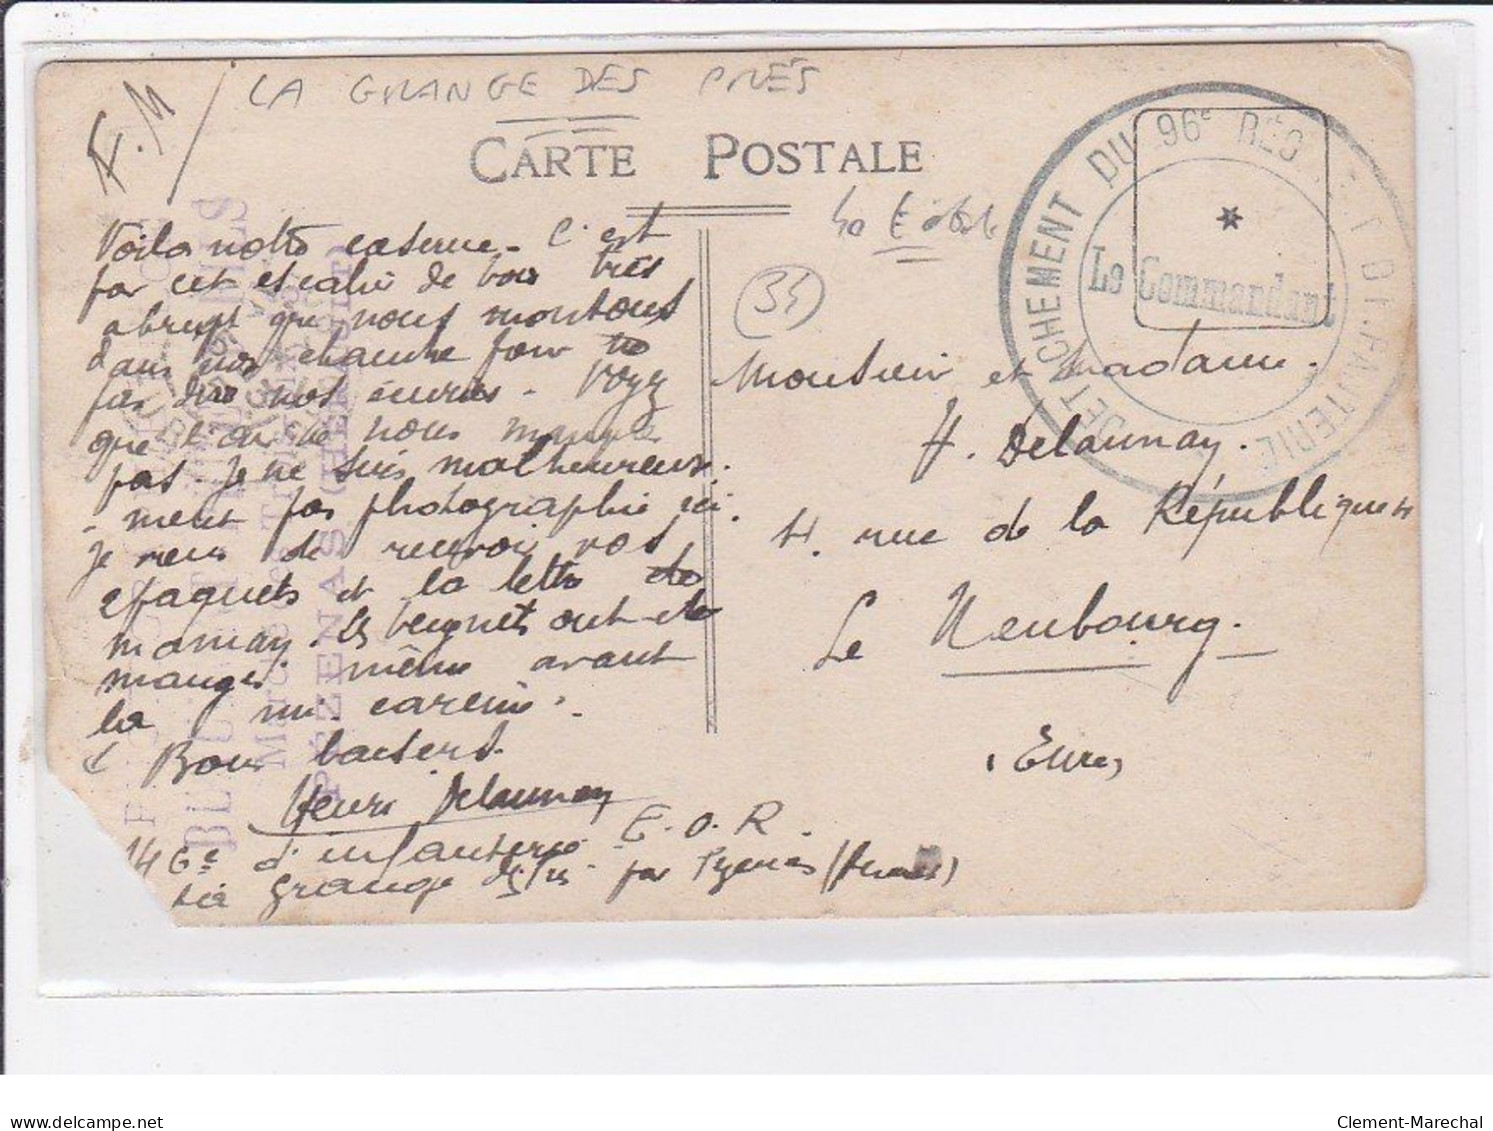 F.M
LA GRANGE DES PRÉS
CARTE POSTALE
DÉTACHEMENT DU 96e RÉG D'INFANTERIE
Le Commandant
34
Voilà notre caserne. C'est
par cet escalier de bois très
abrupt que nous montons
dans nos chambre pour
pas dire nos écuries. Voyez
que l'air ne nous manque
pas. Je ne suis malheureuse
-ment pas photographié ici.
Je viens de recevoir vos
2 paquets et la lettre de
maman. Les beignets ont été
mangés même avant
la mi-carême.
Bons baisers.
Henri Delaunay
E.O.R.
146e d'infanterie
La Grange des Prés par Pézenas (Hérault)
Monsieur et Madame
H. Delaunay.
4. rue de la République
Le Neubourg.
(Eure)
PÉZENAS (HÉRAULT)
Clement-Marechal